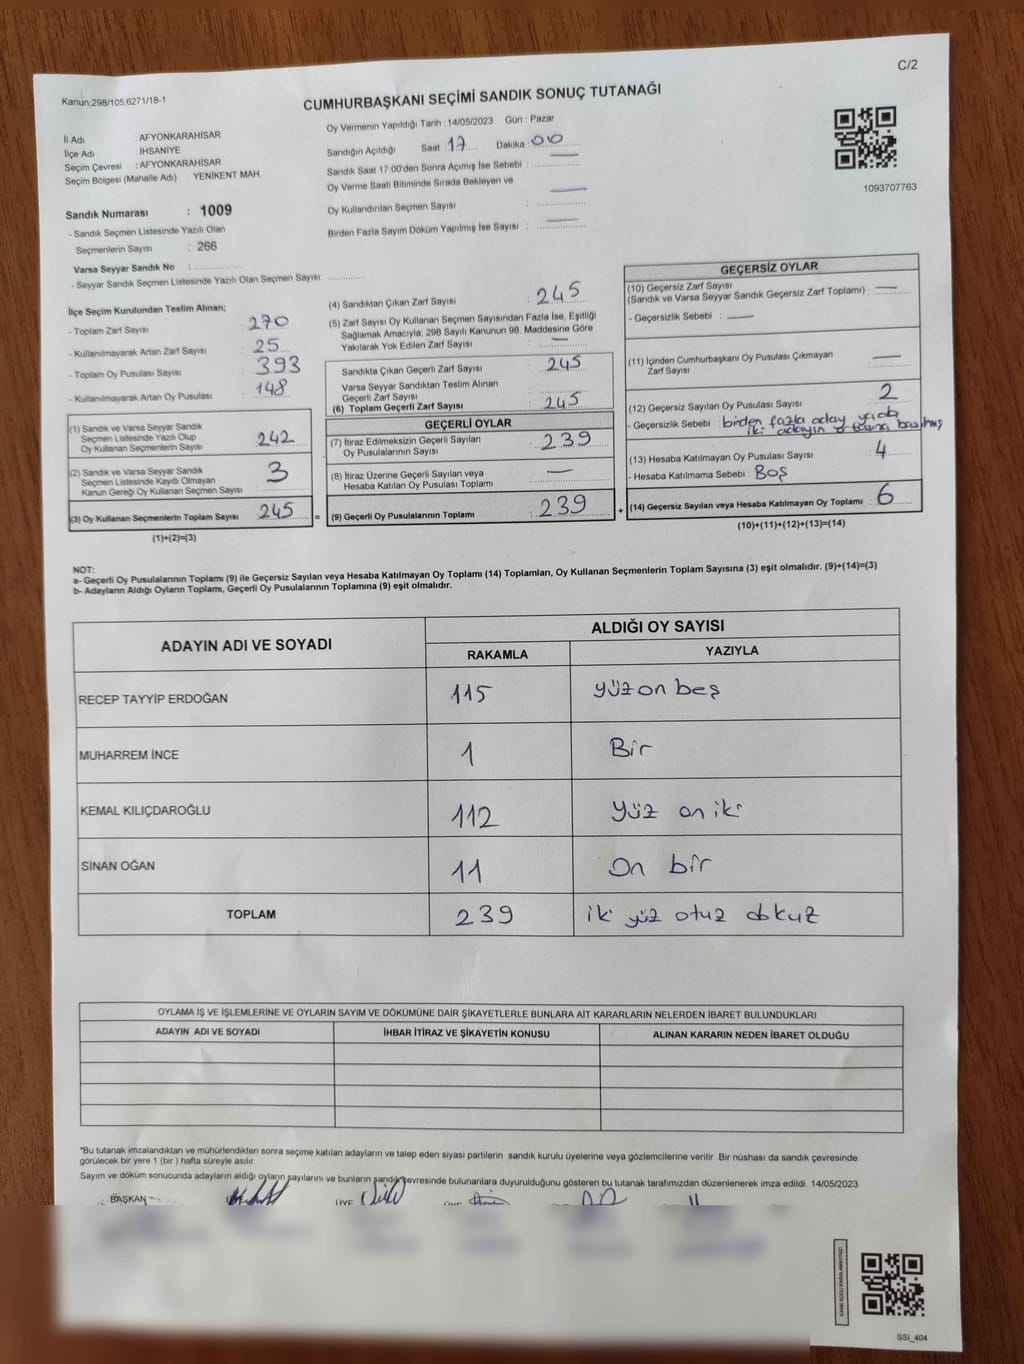 C/2
Kanun,298/105,6271/18-1
CUMHURBAŞKANI SEÇİMİ SANDIK SONUÇ TUTANAĞI
İl Adı : AFYONKARAHİSAR
İlçe Adı : İHSANİYE
Seçim Çevresi : AFYONKARAHİSAR
Seçim Bölgesi (Mahalle Adı) : YENİKENT MAH.
Oy Vermenin Yapıldığı Tarih :14/05/2023 Gün : Pazar
Sandığın Açıldığı Saat 17 Dakika : 00
Sandık Saat 17:00'den Sonra Açımış İse Sebebi :
Oy Verme Saati Bitiminde Sırada Bekleyen ve
Oy Kullandırılan Seçmen Sayısı :
Birden Fazla Sayım Döküm Yapılmış İse Sayısı :
1093707763
Sandık Numarası : 1009
- Sandık Seçmen Listesinde Yazılı Olan
Seçmenlerin Sayısı : 266
Varsa Seyyar Sandık No :
- Seyyar Sandık Seçmen Listesinde Yazılı Olan Seçmen Sayısı:
İlçe Seçim Kurulundan Teslim Alınan;
- Toplam Zarf Sayısı : 270
- Kullanılmayarak Artan Zarf Sayısı : 25
- Toplam Oy Pusulası Sayısı : 393
- Kullanılmayarak Artan Oy Pusulası : 148
(1) Sandık ve Varsa Seyyar Sandık
Seçmen Listesinde Yazılı Olup
Oy Kullanan Seçmenlerin Sayısı : 242
(2) Sandık ve Varsa Seyyar Sandık
Seçmen Listesinde Kayıtlı Olmayan
Kanun Gereği Oy Kullanan Seçmen Sayısı : 3
(3) Oy Kullanan Seçmenlerin Toplam Sayısı : 245 =
(1)+(2)=(3)
(4) Sandıktan Çıkan Zarf Sayısı : 245
(5) Zarf Sayısı Oy Kullanan Seçmen Sayısından Fazla İse, Eşitliği
Sağlamak Amacıyla, 298 Sayılı Kanunun 98. Maddesine Göre
Yakılarak Yok Edilen Zarf Sayısı :
Sandıkta Çıkan Geçerli Zarf Sayısı : 245
Varsa Seyyar Sandıktan Teslim Alınan
Geçerli Zarf Sayısı :
(6) Toplam Geçerli Zarf Sayısı : 245
GEÇERLİ OYLAR
(7) İtiraz Edilmeksizin Geçerli Sayılan
Oy Pusulalarının Sayısı : 239
(8) İtiraz Üzerine Geçerli Sayılan veya
Hesaba Katılan Oy Pusulası Toplamı :
(9) Geçerli Oy Pusulalarının Toplamı : 239 +
GEÇERSİZ OYLAR
(10) Geçersiz Zarf Sayısı
(Sandık ve Varsa Seyyar Sandık Geçersiz Zarf Toplamı) :
- Geçersizlik Sebebi :
(11) İçinden Cumhurbaşkanı Oy Pusulası Çıkmayan
Zarf Sayısı :
(12) Geçersiz Sayılan Oy Pusulası Sayısı : 2
- Geçersizlik Sebebi : birden fazla aday
iki adayın
(13) Hesaba Katılmayan Oy Pusulası Sayısı : 4
- Hesaba Katılmama Sebebi : Boş
(14) Geçersiz Sayılan veya Hesaba Katılmayan Oy Toplamı : 6
(10)+(11)+(12)+(13)=(14)
NOT:
a- Geçerli Oy Pusulalarının Toplamı (9) ile Geçersiz Sayılan veya Hesaba Katılmayan Oy Toplamı (14) Toplamları, Oy Kullanan Seçmenlerin Toplam Sayısına (3) eşit olmalıdır. (9)+(14)=(3)
b- Adayların Aldığı Oyların Toplamı, Geçerli Oy Pusulalarının Toplamına (9) eşit olmalıdır.
ADAYIN ADI VE SOYADI
ALDIĞI OY SAYISI
RAKAMLA YAZIYLA
RECEP TAYYİP ERDOĞAN 115 yüz on beş
MUHARREM İNCE 1 Bir
KEMAL KILIÇDAROĞLU 112 yüz on iki
SİNAN OĞAN 11 On bir
TOPLAM 239 iki yüz otuz dokuz
OYLAMA İŞ VE İŞLEMLERİNE VE OYLARIN SAYIM VE DÖKÜMÜNE DAİR ŞİKAYETLERLE BUNLARA AİT KARARLARIN NELERDEN İBARET BULUNDUKLARI
ADAYIN ADI VE SOYADI İHBAR İTİRAZ VE ŞİKAYETİN KONUSU ALINAN KARARIN NEDEN İBARET OLDUĞU
*Bu tutanak imzalandıktan ve mühürlendikten sonra seçime katılan adayların ve talep eden siyasi partilerin sandık kurulu üyelerine veya gözlemcilerine verilir .Bir nüshası da sandık çevresinde
görülecek bir yere 1 (bir ) hafta süreyle asılır.
Sayım ve döküm sonucunda adayların aldığı oyların sayılarını ve bunların sandık çevresinde bulunanlara duyurulduğunu gösteren bu tutanak tarafımızdan düzenlenerek imza edildi. 14/05/2023
BAŞKAN ÜYE
SSI_404